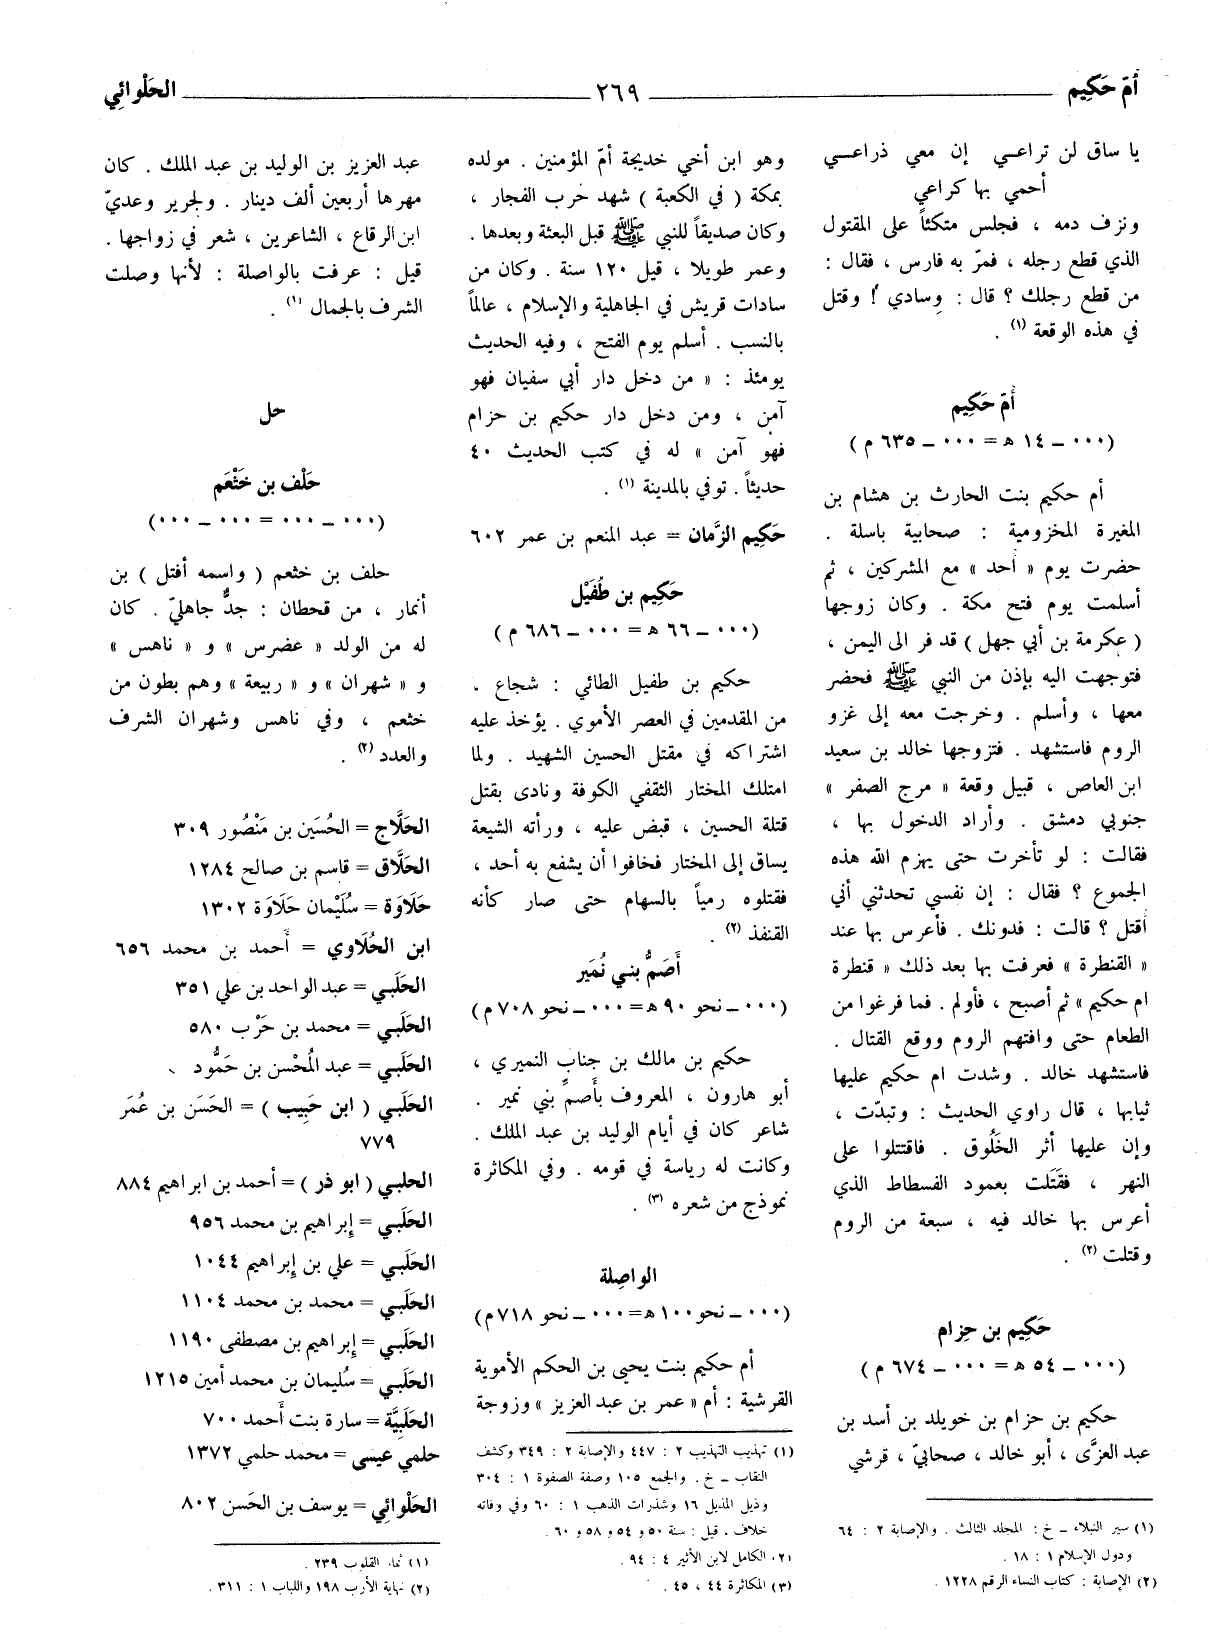 أمّ حَكِيم
٢٦٩
الحَلْوائِي
يا ساق لن تراعـي إن معي ذراعـي
أحمي بها كراعي
ونزف دمه ، فجلس متكئاً على المقتول
الذي قطع رجله ، فمرّ به فارس ، فقال :
من قطع رجلك ؟ قال : وِسادي ! وقتل
في هذه الوقعة (١) .
أمّ حَكِيم
(٠٠٠ ـ ١٤ ه = ٠٠٠ ـ ٦٣٥ م )
أم حكيم بنت الحارث بن هشام بن
المغيرة المخزومية : صحابية باسلة .
حضرت يوم « أحد » مع المشركين ، ثم
أسلمت يوم فتح مكة . وكان زوجها
( عكرمة بن أبي جهل ) قد فر الى اليمن ،
فتوجهت اليه بإذن من النبي ﷺ فحضر
معها ، وأسلم . وخرجت معه إلى غزو
الروم فاستشهد . فتزوجها خالد بن سعيد
ابن العاص ، قبيل وقعة « مرج الصفر »
جنوبي دمشق . وأراد الدخول بها ،
فقالت : لو تأخرت حتى يهزم الله هذه
الجموع ؟ فقال : إن نفسي تحدثني أني
أقتل ؟ قالت : فدونك . فأعرس بها عند
« القنطرة » فعرفت بها بعد ذلك « قنطرة
ام حكيم » ثم أصبح ، فأولم . فما فرغوا من
الطعام حتى وافتهم الروم ووقع القتال .
فاستشهد خالد . وشدت ام حكيم عليها
ثيابها ، قال راوي الحديث : وتبدّت ،
وإن عليها أثر الخَلُوق . فاقتتلوا على
النهر ، فقَتَلت بعمود الفسطاط الذي
أعرس بها خالد فيه ، سبعة من الروم
وقتلت (٢) .
حَكِيم بن حِزام
(٠٠٠ ـ ٥٤ ه = ٠٠٠ ـ ٦٧٤ م )
حكيم بن حزام بن خويلد بن أسد بن
عبد العزَّى ، أبو خالد ، صحابيّ ، قرشي
(١) سير النبلاء ـ خ : المجلد الثالث . والإصابة ٢ : ٦٤
ودول الإسلام ١ : ١٨ .
(٢) الإصابة : كتاب النساء الرقم ١٢٢٨ .
وهو ابن أخي خديجة أمّ المؤمنين . مولده
بمكة ( في الكعبة ) شهد حرب الفجار ،
وكان صديقاً للنبي ﷺ قبل البعثة وبعدها .
وعمر طويلا ، قيل ١٢٠ سنة . وكان من
سادات قريش في الجاهلية والإسلام ، عالماً
بالنسب . أسلم يوم الفتح ، وفيه الحديث
يومئذ : « من دخل دار أبي سفيان فهو
آمن ، ومن دخل دار حكيم بن حزام
فهو آمن » له في كتب الحديث ٤٠
حديثاً . توفي بالمدينة (١) .
حَكِيم الزَّمان = عبد المنعم بن عمر ٦٠٢
حَكِيم بن طُفَيْل
(٠٠٠ ـ ٦٦ ه = ٠٠٠ ـ ٦٨٦ م )
حكيم بن طفيل الطائي : شجاع .
من المقدمين في العصر الأموي . يؤخذ عليه
اشتراكه في مقتل الحسين الشهيد . ولما
امتلك المختار الثقفي الكوفة ونادى بقتل
قتلة الحسين ، قبض عليه ، ورأته الشيعة
يساق إلى المختار فخافوا أن يشفع به أحد ،
فقتلوه رمياً بالسهام حتى صار كأنه
القنفذ (٢) .
أَصَمُّ بني نُمَير
(٠٠٠ ـ نحو ٩٠ ه = ٠٠٠ ـ نحو ٧٠٨ م )
حكيم بن مالك بن جناب النميري ،
أبو هارون ، المعروف بأَصمِّ بني نمير .
شاعر كان في أيام الوليد بن عبد الملك .
وكانت له رياسة في قومه . وفي المكاثرة
نموذج من شعره (٣) .
الواصِلة
(٠٠٠ ـ نحو ١٠٠ ه = ٠٠٠ ـ نحو ٧١٨ م )
أم حكيم بنت يحيى بن الحكم الأموية
القرشية : أم « عمر بن عبد العزيز » وزوجة
(١) تهذيب التهذيب ٢ : ٤٤٧ والإصابة ٢ : ٣٤٩ وكشف
النقاب ـ خ . والجمع ١٠٥ وصفة الصفوة ١ : ٣٠٤
وذيل المذيل ١٦ وشذرات الذهب ١ : ٦٠ وفي وفاته
خلاف ، قيل : سنة ٥٠ و ٥٤ و ٥٨ و ٦٠ .
(٢) الكامل لابن الأثير ٤ : ٩٤ .
(٣) المكاثرة ٤٤ ، ٤٥ .
عبد العزيز بن الوليد بن عبد الملك . كان
مهرها أربعين ألف دينار . ولجرير وعديّ
ابن الرقاع ، الشاعرين ، شعر في زواجها .
قيل : عرفت بالواصلة : لأنها وصلت
الشرف بالجمال (١) .
حل
حَلْف بن خَثْعَم
(٠٠٠ ـ ٠٠٠ = ٠٠٠ ـ ٠٠٠)
حلف بن خثعم ( واسمه أفتل ) بن
أنمار ، من قحطان : جدٌّ جاهليّ . كان
له من الولد « عضرس » و « ناهس »
و « شهران » و « ربيعة » وهم بطون من
خثعم ، وفي ناهس وشهران الشرف
والعدد (٢) .
الحَلَّاج = الحُسَين بن مَنْصُور ٣٠٩
الحَلَّاق = قاسم بن صالح ١٢٨٤
حَلَاوَة = سُلَيْمان حَلَاوَة ١٣٠٢
ابن الحُلَاوي = أَحمد بن محمد ٦٥٦
الحَلَبـي = عبد الواحد بن علي ٣٥١
الحَلَبـي = محمد بن حَرْب ٥٨٠
الحَلَبـي = عبد المُحْسن بن حَمُّود
الحَلَبـي ( ابن حَبِيب ) = الحَسَن بن عُمَر
٧٧٩
الحلبـي ( ابو ذر ) = أحمد بن ابراهيم ٨٨٤
الحَلَبـي = إِبراهيم بن محمد ٩٥٦
الحَلَبـي = علي بن إِبراهيم ١٠٤٤
الحَلَبـي = محمد بن محمد ١١٠٤
الحَلَبـي = إِبراهيم بن مصطفى ١١٩٠
الحَلَبـي = سُليمان بن محمد أمين ١٢١٥
الحَلَبِيَّة = سارة بنت أَحمد ٧٠٠
حلمي عيسى = محمد حلمي ١٣٧٢
الحَلْوائِي = يوسف بن الحَسن ٨٠٢
(١) ثمار القلوب ٢٣٩ .
(٢) نهاية الأرب ١٩٨ واللباب ١ : ٣١١ .